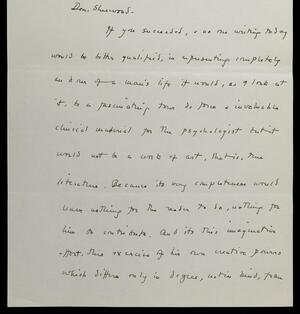 Dear Sherwood -
If you succeeded, & no one writing today
would be better qualified, in representing completely
an hour of a man's life it would, as I look at
it, be a fascinating tour de force & invaluable
clinical material for the psychologist but it
would not be a work of art, that is, true
literature. Because its very completeness would
leave nothing for the reader to do, nothing for
him to contribute. And its this imaginative
effort, this exercise of his own creative powers
which differ only in degree, not in kind, from